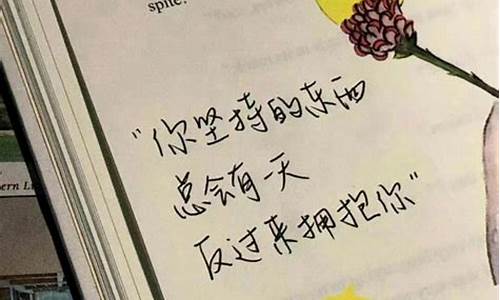 spite.
"你坚持的东西
总会有一天
反过来拥抱你"
ern Li